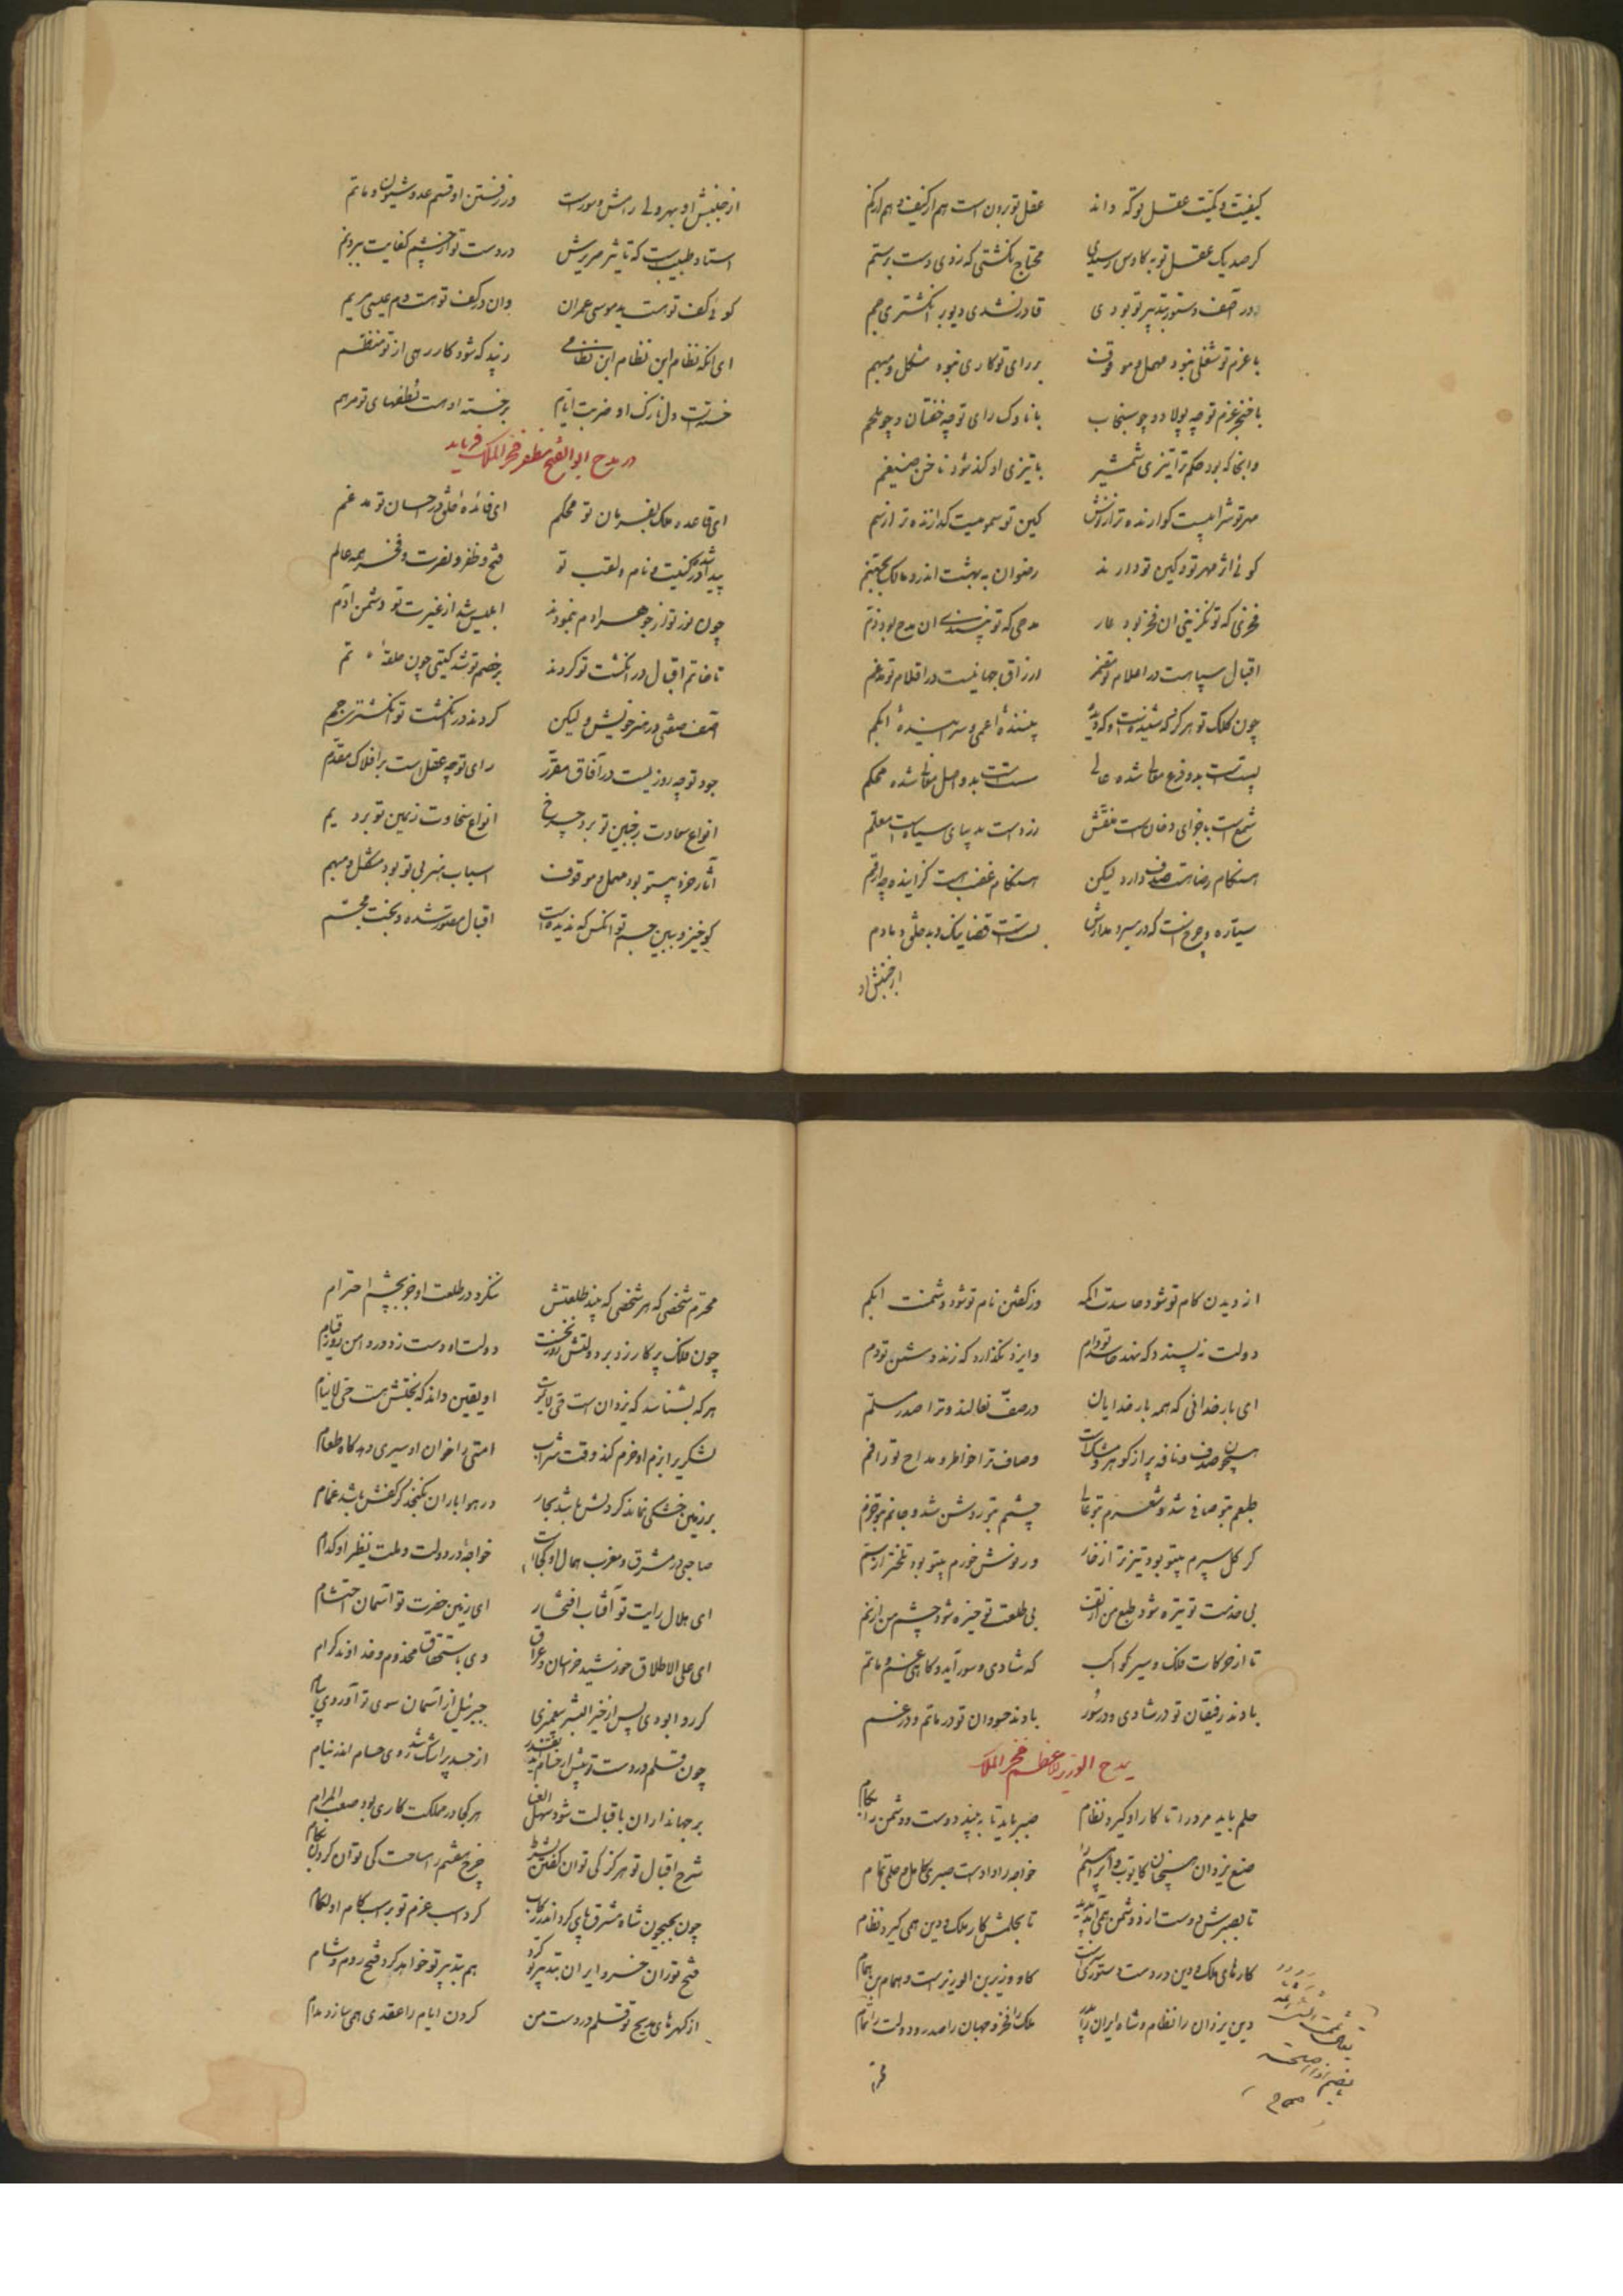 کیفیت و کمیت عقل تو که داند عقل تو برون است هم از کیف و هم از کم
گر صد یک عقل تو به کاوس رسیدی محتاج نگشتی که زدی دست برستم
ور آصف دستور بتدبیر تو بودی قادر نشدی دیو بر انگشتری جم
با عزم تو شغلی نبود مهمل و موقوف بر رای تو کاری نبود مشکل و مبهم
با خنجر عزم تو چه پولاد و چو سنجاب با ناوک رای تو چه خفتان و چو ملحم
وانجا که بود حکم ترا تیزی شمشیر با تیزی او کند شود ناخن ضیغم
مهر تو شرابیست گوارنده تر از نوش کین تو سمومیست گدازنده تر از سم
گوئی اثر مهر تو و کین تو دارند رضوان به بهشت اندر و مالک بجهنم
فخری که تو نگزینی آن فخر بود عار مدحی که تو نپسندی آن مدح بود ذم
اقبال سپاهیست در اعلام تو مضمر ارزاق جهانیست در اقلام تو مدغم
چون کلک تو هرگز که شنیدست و که دیده بیننده اعمی و سراینده ابکم
پیتست بدو فرع معالی شده عالی بدو اصل معالی شده محکم
شمع است با جزای دخان است منقش
هنگام رضا هست صدف وار و لیکن هنگام غضب هست گزاینده چو ارقم
سیاره و چرخ است که در سیر و مدارش بست است قضا نیک و بد خلق دمادم
از جنبش او
از جنبش او بهر ولی رامش و سورست وز رفتن او قسم عدو شیون و ماتم
استاد طبیب است که تاثیر صریرش در دست تو از چشم کفایت ببرد نم
گوئی کف تو هست ید موسی عمران وان در کف تو هست دم عیسی مریم
ای آنکه نظام ابن نظام ابن نظامی زیبد که شود کار رهی از تو منظم
خسته است دل نازک او ضربت ایام بر خسته او هست لطفهای تو مرهم
در مدح ابوالفتح مظفر فخر الملک فرماید
ای قاعده ملک بفرمان تو محکم ای فائده خلق در احسان تو مدغم
پیدا شده در کنیت و نام و لقب تو فتح و ظفر و نصرت و فخر همه عالم
چون نور تو از جوهر آدم بنمودند ابلیس شد از غیرت تو دشمن آدم
تا خاتم اقبال در انگشت تو کردند بر خصم تو شد گیتی چون حلقه خاتم
آصف صفتی در هنر خویش و لیکن کردند در انگشت تو انگشتری جم
جود تو چو روزیست در آفاق مقرر رای تو چه عقل است بر افلاک مقدم
انواع سعادت ز جبین تو برد چرخ انواع سخاوت ز یمین تو برد یم
آثار خرد بیتو بود مهمل و موقوف اسباب هنر بی تو بود مشکل و مبهم
گو خیز و ببین چهر تو آنکس که ندیده است اقبال مصور شده و بخت مجسم
از دیدن کام تو شود حاسدت اکمه وز گفتن نام تو شود دشمنت ابکم
دولت نپسندد که نهد حاسد تو دام وایزد نگذارد که زند دشمن تو دم
ای بار خدائی که همه بار خدایان در صف نعالند و ترا صدر مسلم
همچون صدف و نافه پر از گوهر و مشک است وصاف ترا خاطر و مداح ترا فم
طبعم بتو صافی شد و شعرم بتو عالی چشمم بتو روشن شد و جانم بتو خرم
گر گل سپرم بیتو بود تیزتر از خار ور نوش خورم بیتو بود تلختر از سم
بی خدمت تو تیره شود طبع من از تف بی طلعت تو خیره شود چشم من از نم
تا از حرکات فلک و سیر کواکب گه شادی و سور آید و گاهی غم و ماتم
بادند رفیقان تو در شادی و در سور بادند حسودان تو در ماتم و در غم
بمدح الوزیر الاعظم فخر الملک
حلم باید مرد را تا کار او گیرد نظام صبر باید تا به بیند دوست و دشمن را بکام
صنع یزدان همچنان کایوب و ابراهیم را خواجه را دادست صبری کامل و حلمی تمام
تا بصبرش دوست از دشمن همی آید پدید تا بحلمش کار ملک و دین همی گیرد نظام
کارهای ملک و دین در دست دستوریست کاو وزیر بن الوزیرست و همام بن همام
دین یزدان را نظام و شاه ایران را پدر ملک را فخر و جهان را صدر و دولت را تمام
محترم
محترم شخصی که هر شخصی که بیند طلعتش ننگرد در طلعت او جز بچشم احترام
چون فلک پرگار زد بر دولتش روز نخست دولتاه دست زد در دامن روز قیام
هر که بشناسد که یزدان است حی لایموت او یقین داند که بختش هست حی لاینام
لشکری را بزم او خرم کند وقت شراب امتی را خوان او سیری دهد گاه طعام
بر زمین خشکی نماند گر دلش باشد بحار در هوا باران نگنجد گر کفش باشد غمام
صاحبی در مشرق و مغرب همال او کجاست خواجه در دولت و ملت نظیر او کدام
ای هلال رایت تو آفتاب افتخار ای زمین حضرت تو آسمان احتشام
ای علی الاطلاق خورشید خراسان و عراق وی باستحقاق مخدوم و خداوند کرام
گر روا بودی پس از خیر البشر پیغمبری جبرئیل از آسمان سوی تو آوردی پیام
چون قلم در دست تو پیش از حسام آمد بقدر از حسد پر اشک شد روی حسام اندر نیام
بر جهانداران باقبالت شود سهل العنا هر کجا در مملکت کاری بود صعب المرام
شرح اقبال تو هرگز کی توان گفتن بشرط چرخ هفتم را مساحت کی توان کردن بگام
چون بجیحون شاه مشرق پای کرد اندر رکاب کرد اسب عزم تو بر اسب کام او لگام
فتح توران خسرو ایران بتدبیر تو کرد هم بتدبیر تو خواهد کرد فتح روم و شام
از گهرهای مدیح تو قلم در دست من گردن ایام را عقدی همی سازد مدام